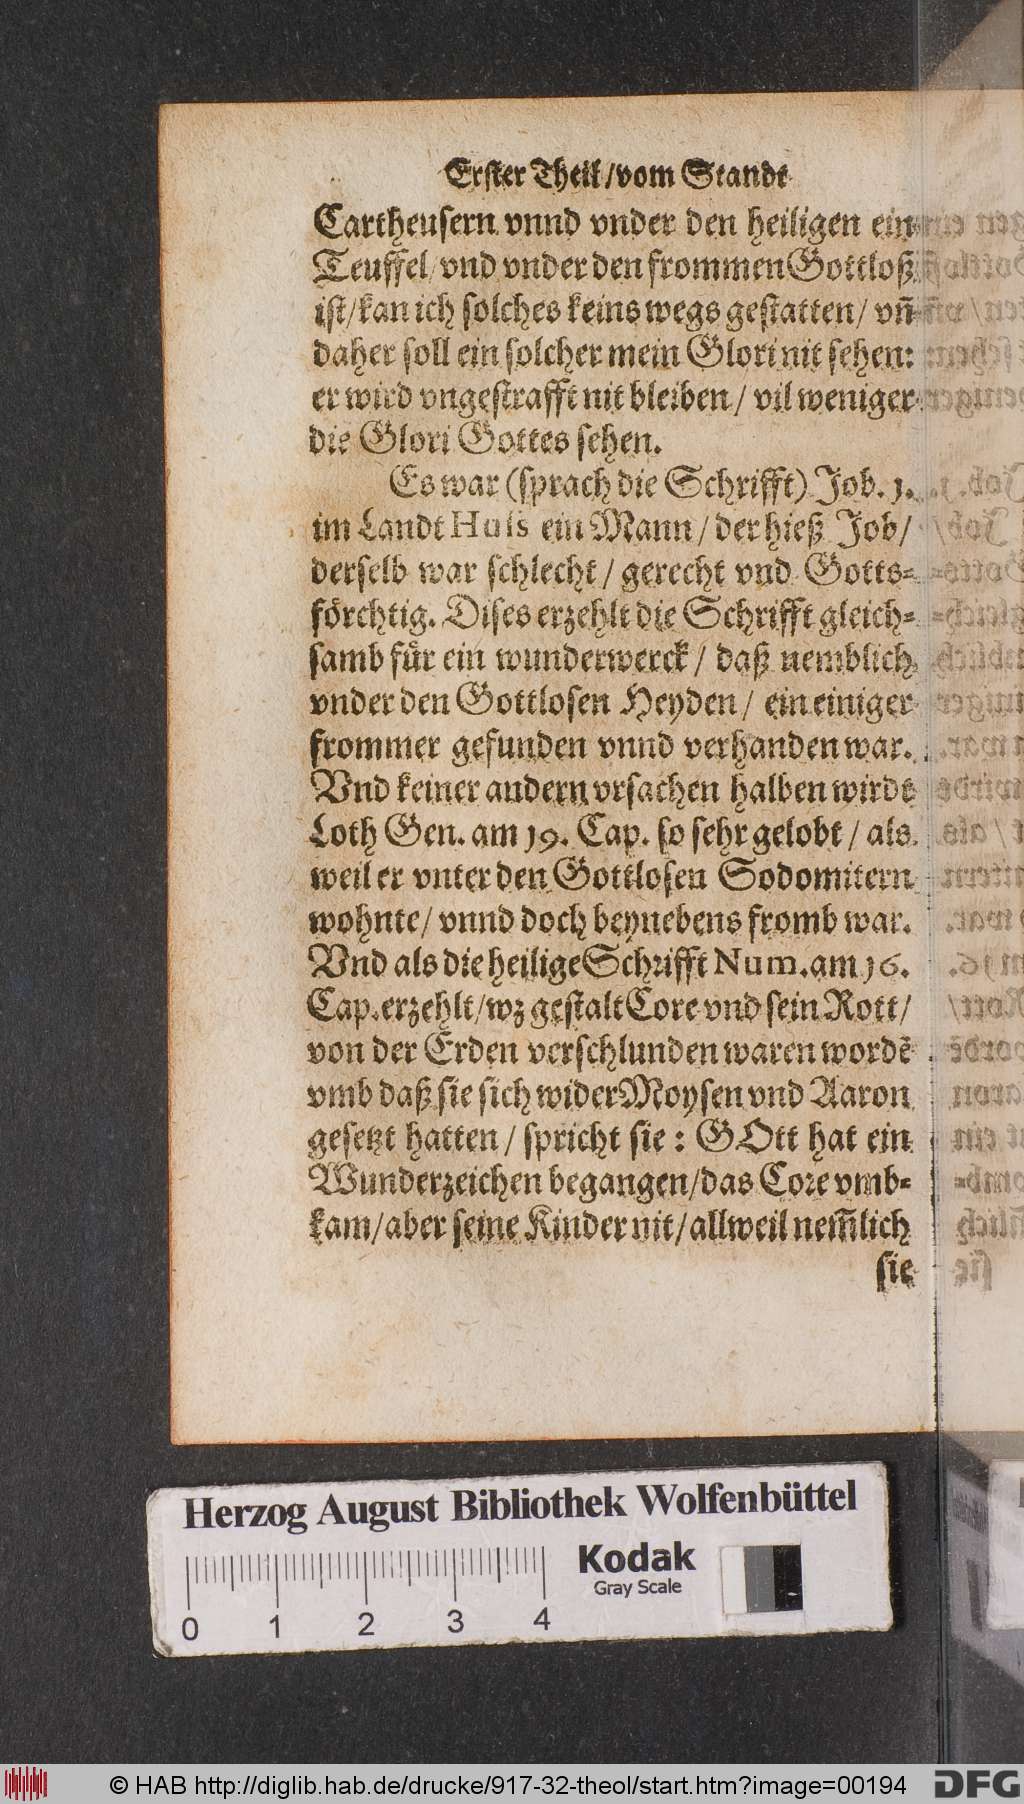 Erster Theil / vom Standt
Cartheusern vnnd vnder den heiligen ein
Teuffel / vnd vnder den frommen Gottloß
ist / kan ich solches keins wegs gestatten / vñ
daher soll ein solcher mein Glori nit sehen:
er wird vngestrafft nit bleiben / vil weniger
die Glori Gottes sehen.
Es war (sprach die Schrifft) Job. 1.
im Landt Huls ein Mann / der hieß Job /
derselb war schlecht / gerecht vnd Gotts-
förchtig. Dises erzehlt die Schrifft gleich-
samb für ein wunderwerck / daß nemblich
vnder den Gottlosen Heyden / ein einiger
frommer gefunden vnnd verhanden war.
Vnd keiner andern vrsachen halben wirdt
Loth Gen. am 19. Cap. so sehr gelobt / als
weil er vnter den Gottlosen Sodomitern
wohnte / vnnd doch beynebens fromb war.
Vnd als die heilige Schrifft Num. am 16.
Cap. erzehlt / wz gestalt Core vnd sein Rott /
von der Erden verschlunden waren wordẽ
vmb daß sie sich wider Moysen vnd Aaron
gesetzt hatten / spricht sie : GOtt hat ein
Wunderzeichen begangen / das Core vmb-
kam / aber seine Kinder nit / allweil nem̃lich
sie
Herzog August Bibliothek Wolfenbüttel
Kodak
Gray Scale
0 1 2 3 4
© HAB http://diglib.hab.de/drucke/917-32-theol/start.htm?image=00194
DFG